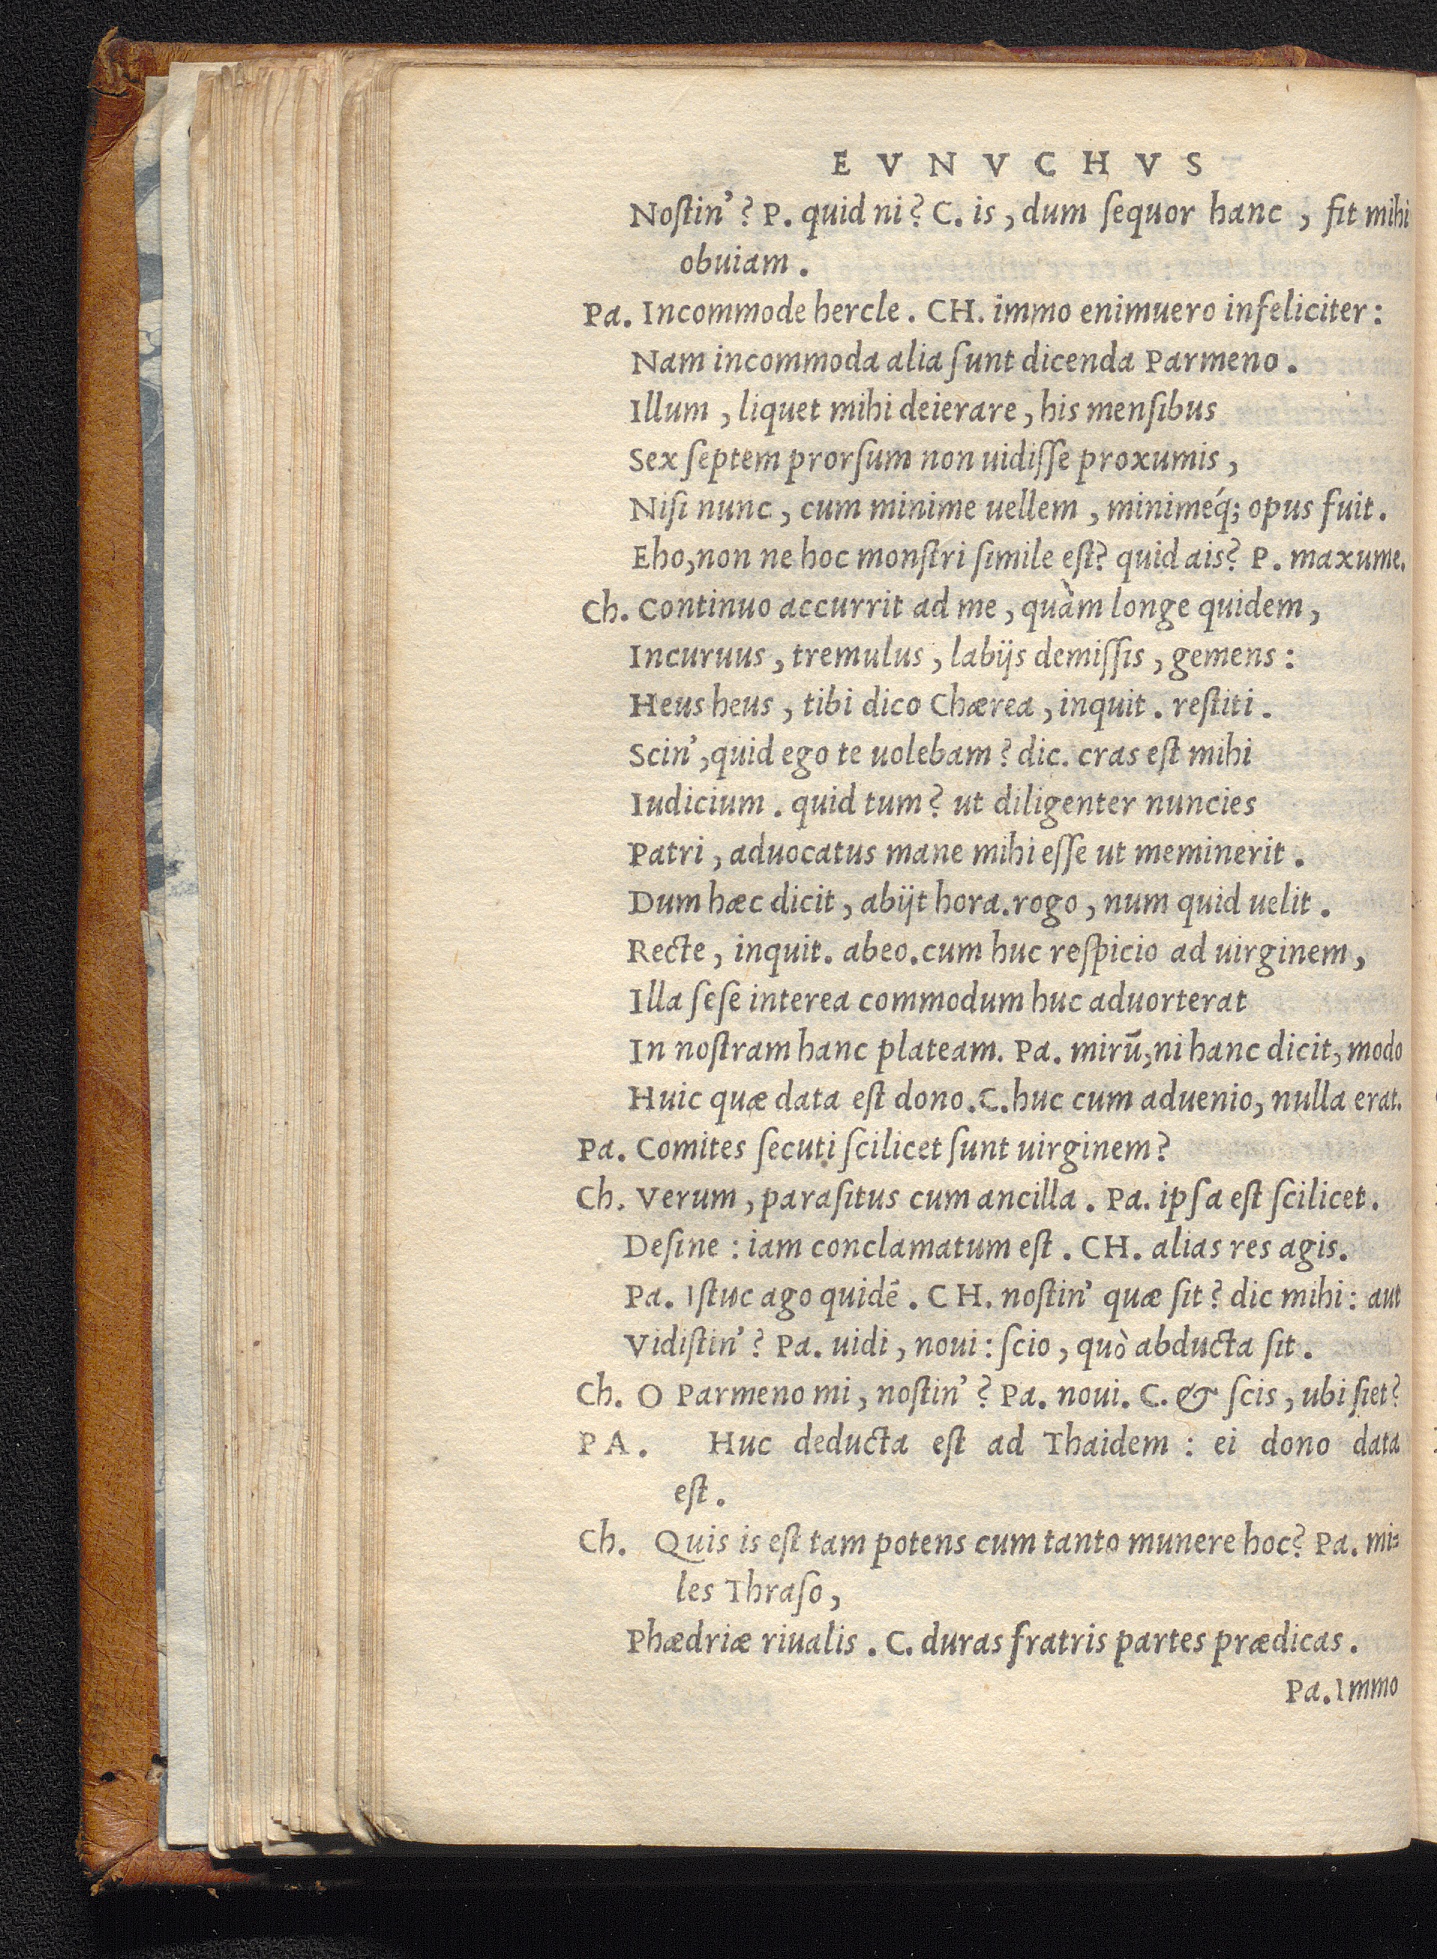 EVNVCHVS
Noſtin'? P. quid ni? C. is, dum ſequor hanc, fit mihi
obuiam.
Pa. Incommode hercle. CH. immo enimuero infeliciter:
Nam incommoda alia ſunt dicenda Parmeno.
Illum, liquet mihi deierare, his menſibus
Sex ſeptem prorſum non uidiſſe proxumis,
Niſi nunc, cum minime uellem, minimeq́; opus fuit.
Eho, non ne hoc monſtri ſimile eſt? quid ais? P. maxume.
Ch. Continuo accurrit ad me, quàm longe quidem,
Incuruus, tremulus, labijs demiſſis, gemens:
Heus heus, tibi dico Chærea, inquit. reſtiti.
Scin', quid ego te uolebam? dic. cras eſt mihi
Iudicium. quid tum? ut diligenter nuncies
Patri, aduocatus mane mihi eſſe ut meminerit.
Dum hæc dicit, abijt hora. rogo, num quid uelit.
Recte, inquit. abeo. cum huc reſpicio ad uirginem,
Illa ſeſe interea commodum huc aduorterat
In noſtram hanc plateam. Pa. mirū, ni hanc dicit, modo
Huic quæ data eſt dono. C. huc cum aduenio, nulla erat.
Pa. Comites ſecuti ſcilicet ſunt uirginem?
Ch. Verum, paraſitus cum ancilla. Pa. ipſa eſt ſcilicet.
Deſine: iam conclamatum eſt. CH. alias res agis.
Pa. Iſtuc ago quidē. CH. noſtin' quæ ſit? dic mihi: aut
Vidiſtin'? Pa. uidi, noui: ſcio, quò abducta ſit.
Ch. O Parmeno mi, noſtin'? Pa. noui. C. & ſcis, ubi ſiet?
PA. Huc deducta eſt ad Thaidem: ei dono data
eſt.
Ch. Quis is eſt tam potens cum tanto munere hoc? Pa. mi-
les Thraſo,
Phædriæ riualis. C. duras fratris partes prædicas.
Pa. Immo